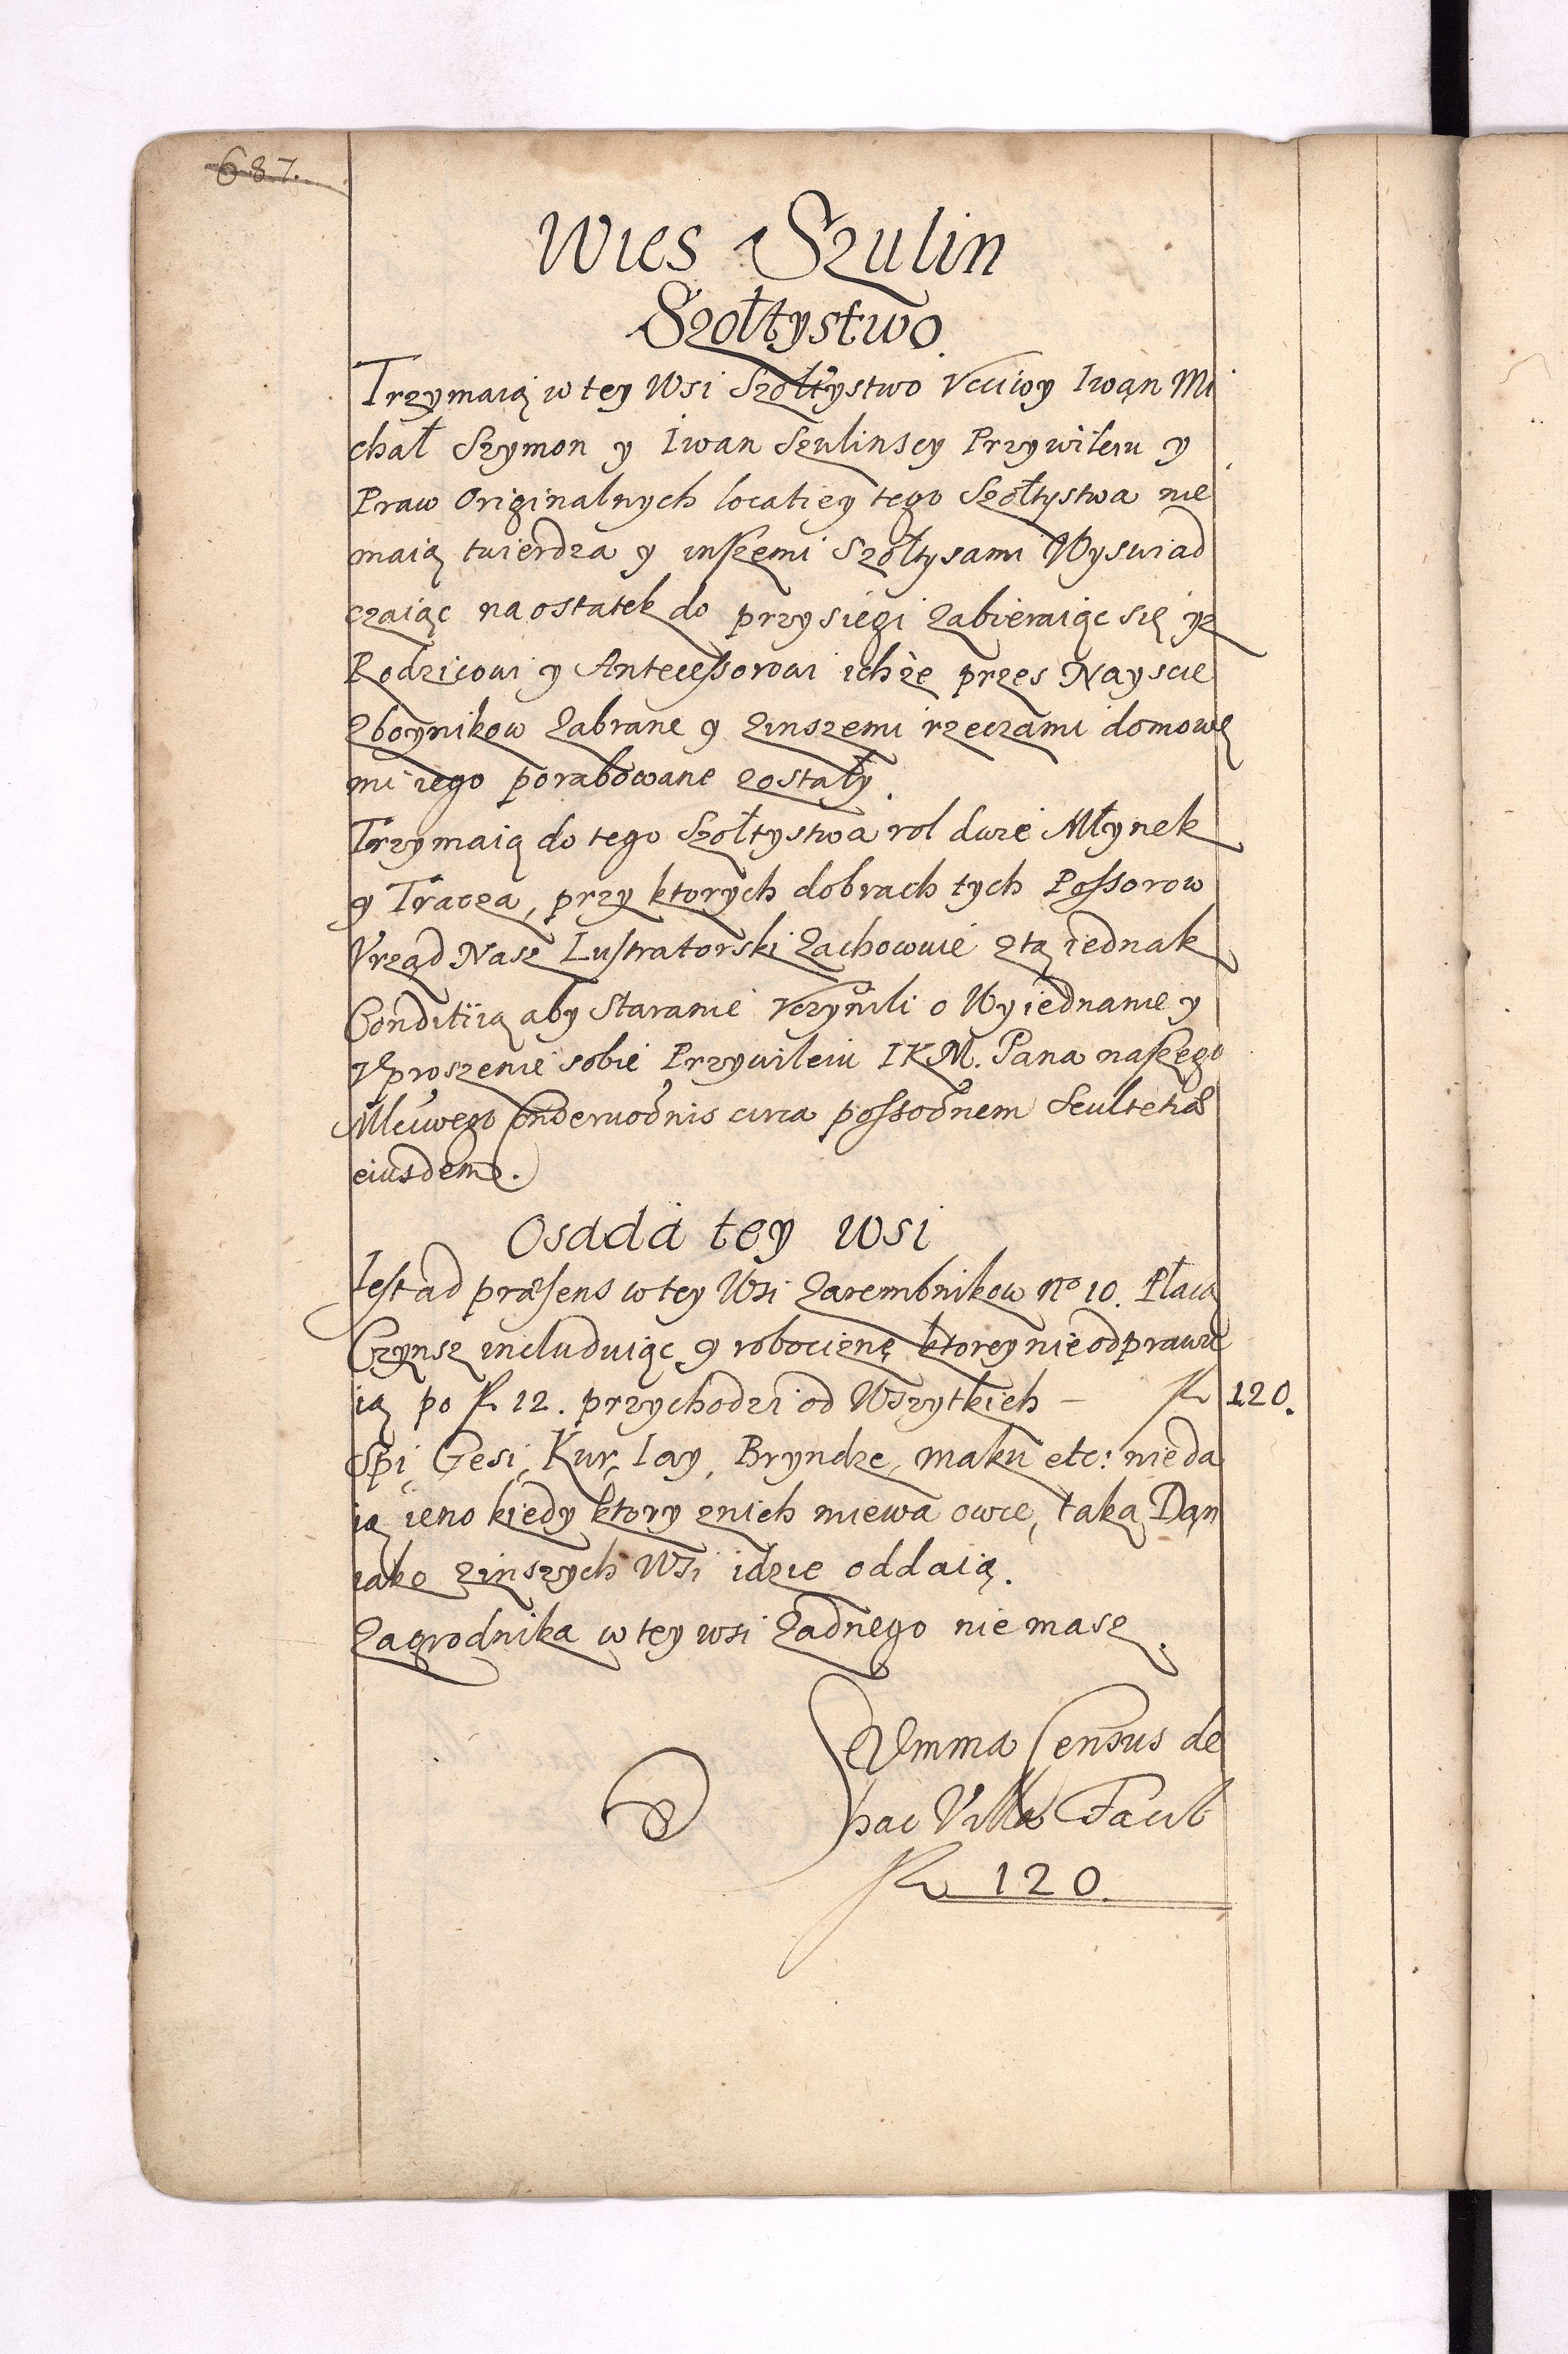 687.
Wies Szulin
Szołtystwo.
Trzymaią w tey Wsi Szołtystwo Vcciwy Iwan Mi
chał Szymon y Iwan Szulinscy Przywileiu y
Praw Originalnych locatiey tego Szołtystwa nie
maią twierdza y inszemi Szołtysami Wyswiad
czaiąc na ostatek do przysięgi zabieraiąc się yz
Rodzicowi y Antecessorowi ichże przes Nayscie
Zboynikow zabrane y zinszemi rzeczami domowę
mi iego porabowane zostały.
Trzymaią do tego Szołtystwa rol dwie Młynek
y Tracza, przy ktorych dobrach tych Possorow
Vrząd Nasz Lustratorski zachowuie ztą iednak
Conditiią aby staranie Vczynili o Wyiednanie y
Vproszenie sobie Przywileiu IKM. Pana naszego
Młciwego circa possoõnem Scultetiæ
eiusdem.
Osada tey wsi
Iest ad præsens w tey Wsi Zarembnikow No 10. Płacą
Czynsz includuiąc y robociznę ktorey nie odprawu
ią po fl 12. przychodzi od Wszytkich – fl 120.
Spi, Gęsi, Kur, Iay, Bryndze, maku etc: nie da
ią ieno kiedy ktory znich miewa owce, taką Dan
iako zinszych Wsi idzie oddaią.
Zagrodnika w tey wsi żadnego nie masz.
SVmma Census de
hac Villa Facit
fl 120.